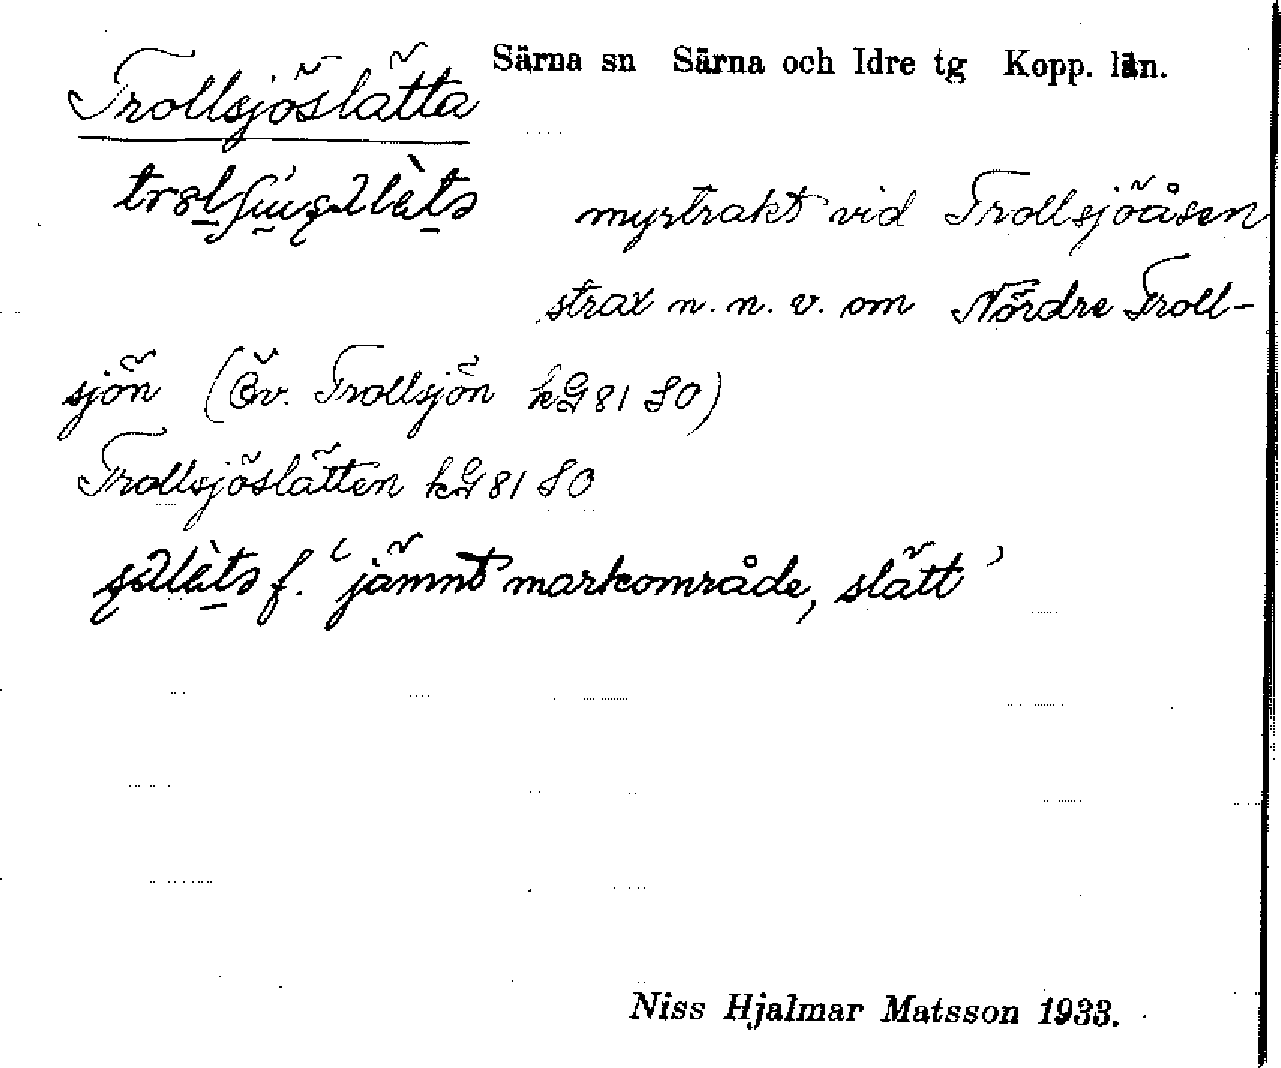 Särna sn Särna och Idre tg Kopp. län.
Trollsjöslätta
myrtrakt vid Trollsjöåsen
strax n. n. v. om Nördre Troll-
sjön (Öv. Trollsjön kG 81 SO)
Trollsjöslätten kG 81 SO
f. 'jämnt markområde, slätt'
Niss Hjalmar Matsson 1933.